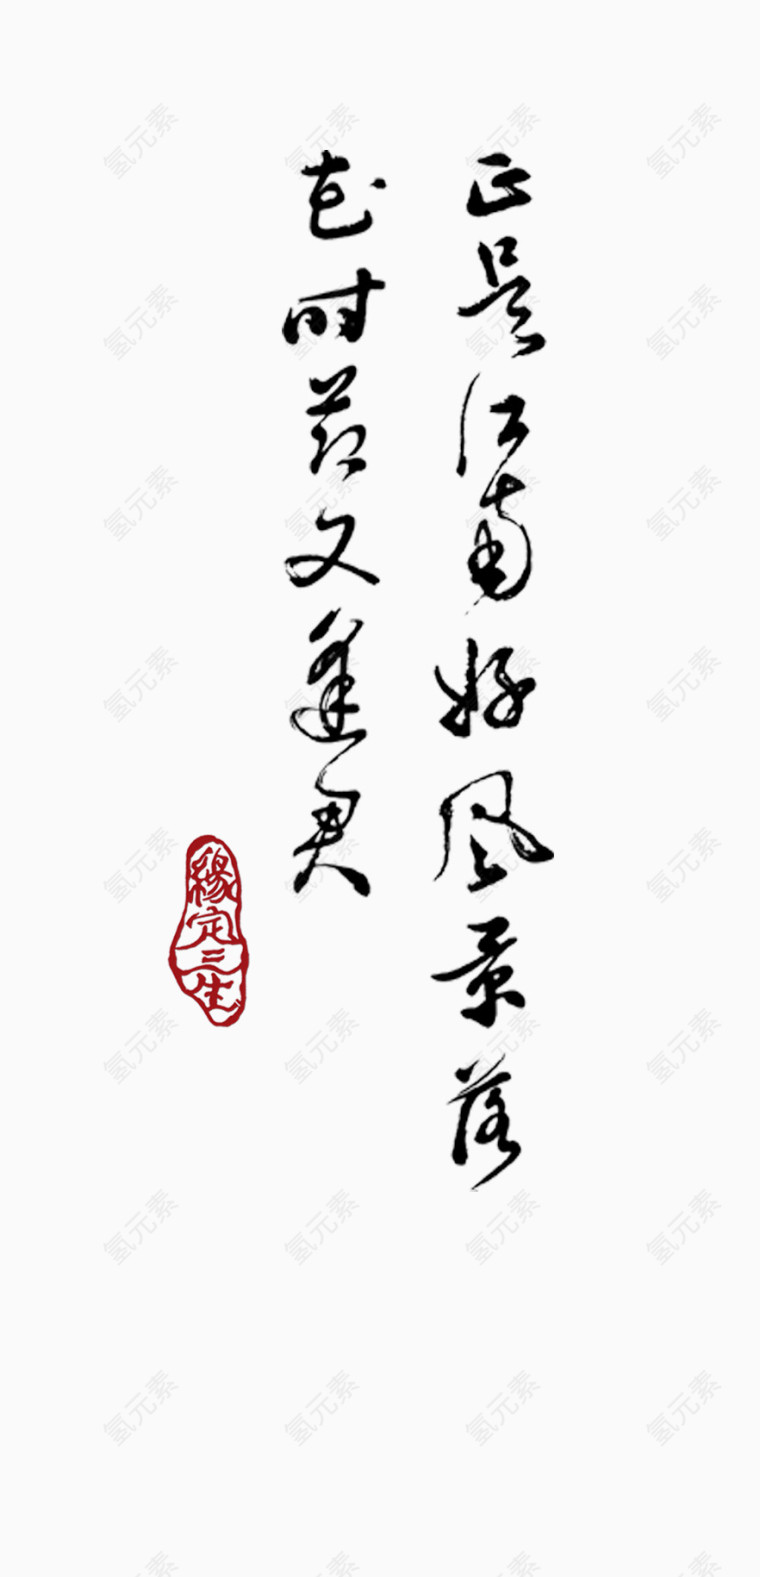 正是江南好风景落
花时节又逢君
緣定三生
氢元素